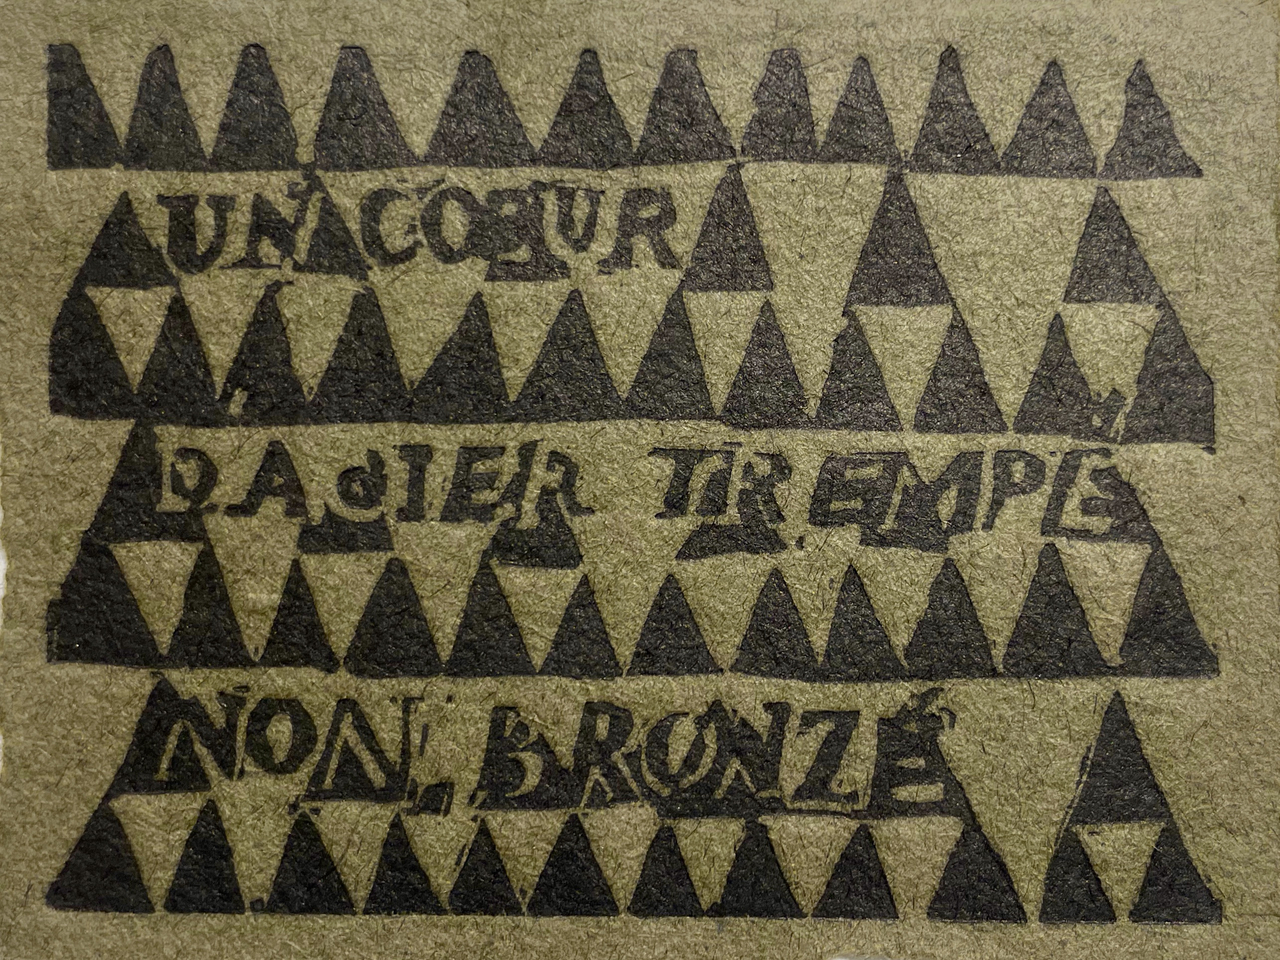 UN COEUR
DACIER TREMPE
NON. BRONZÉ